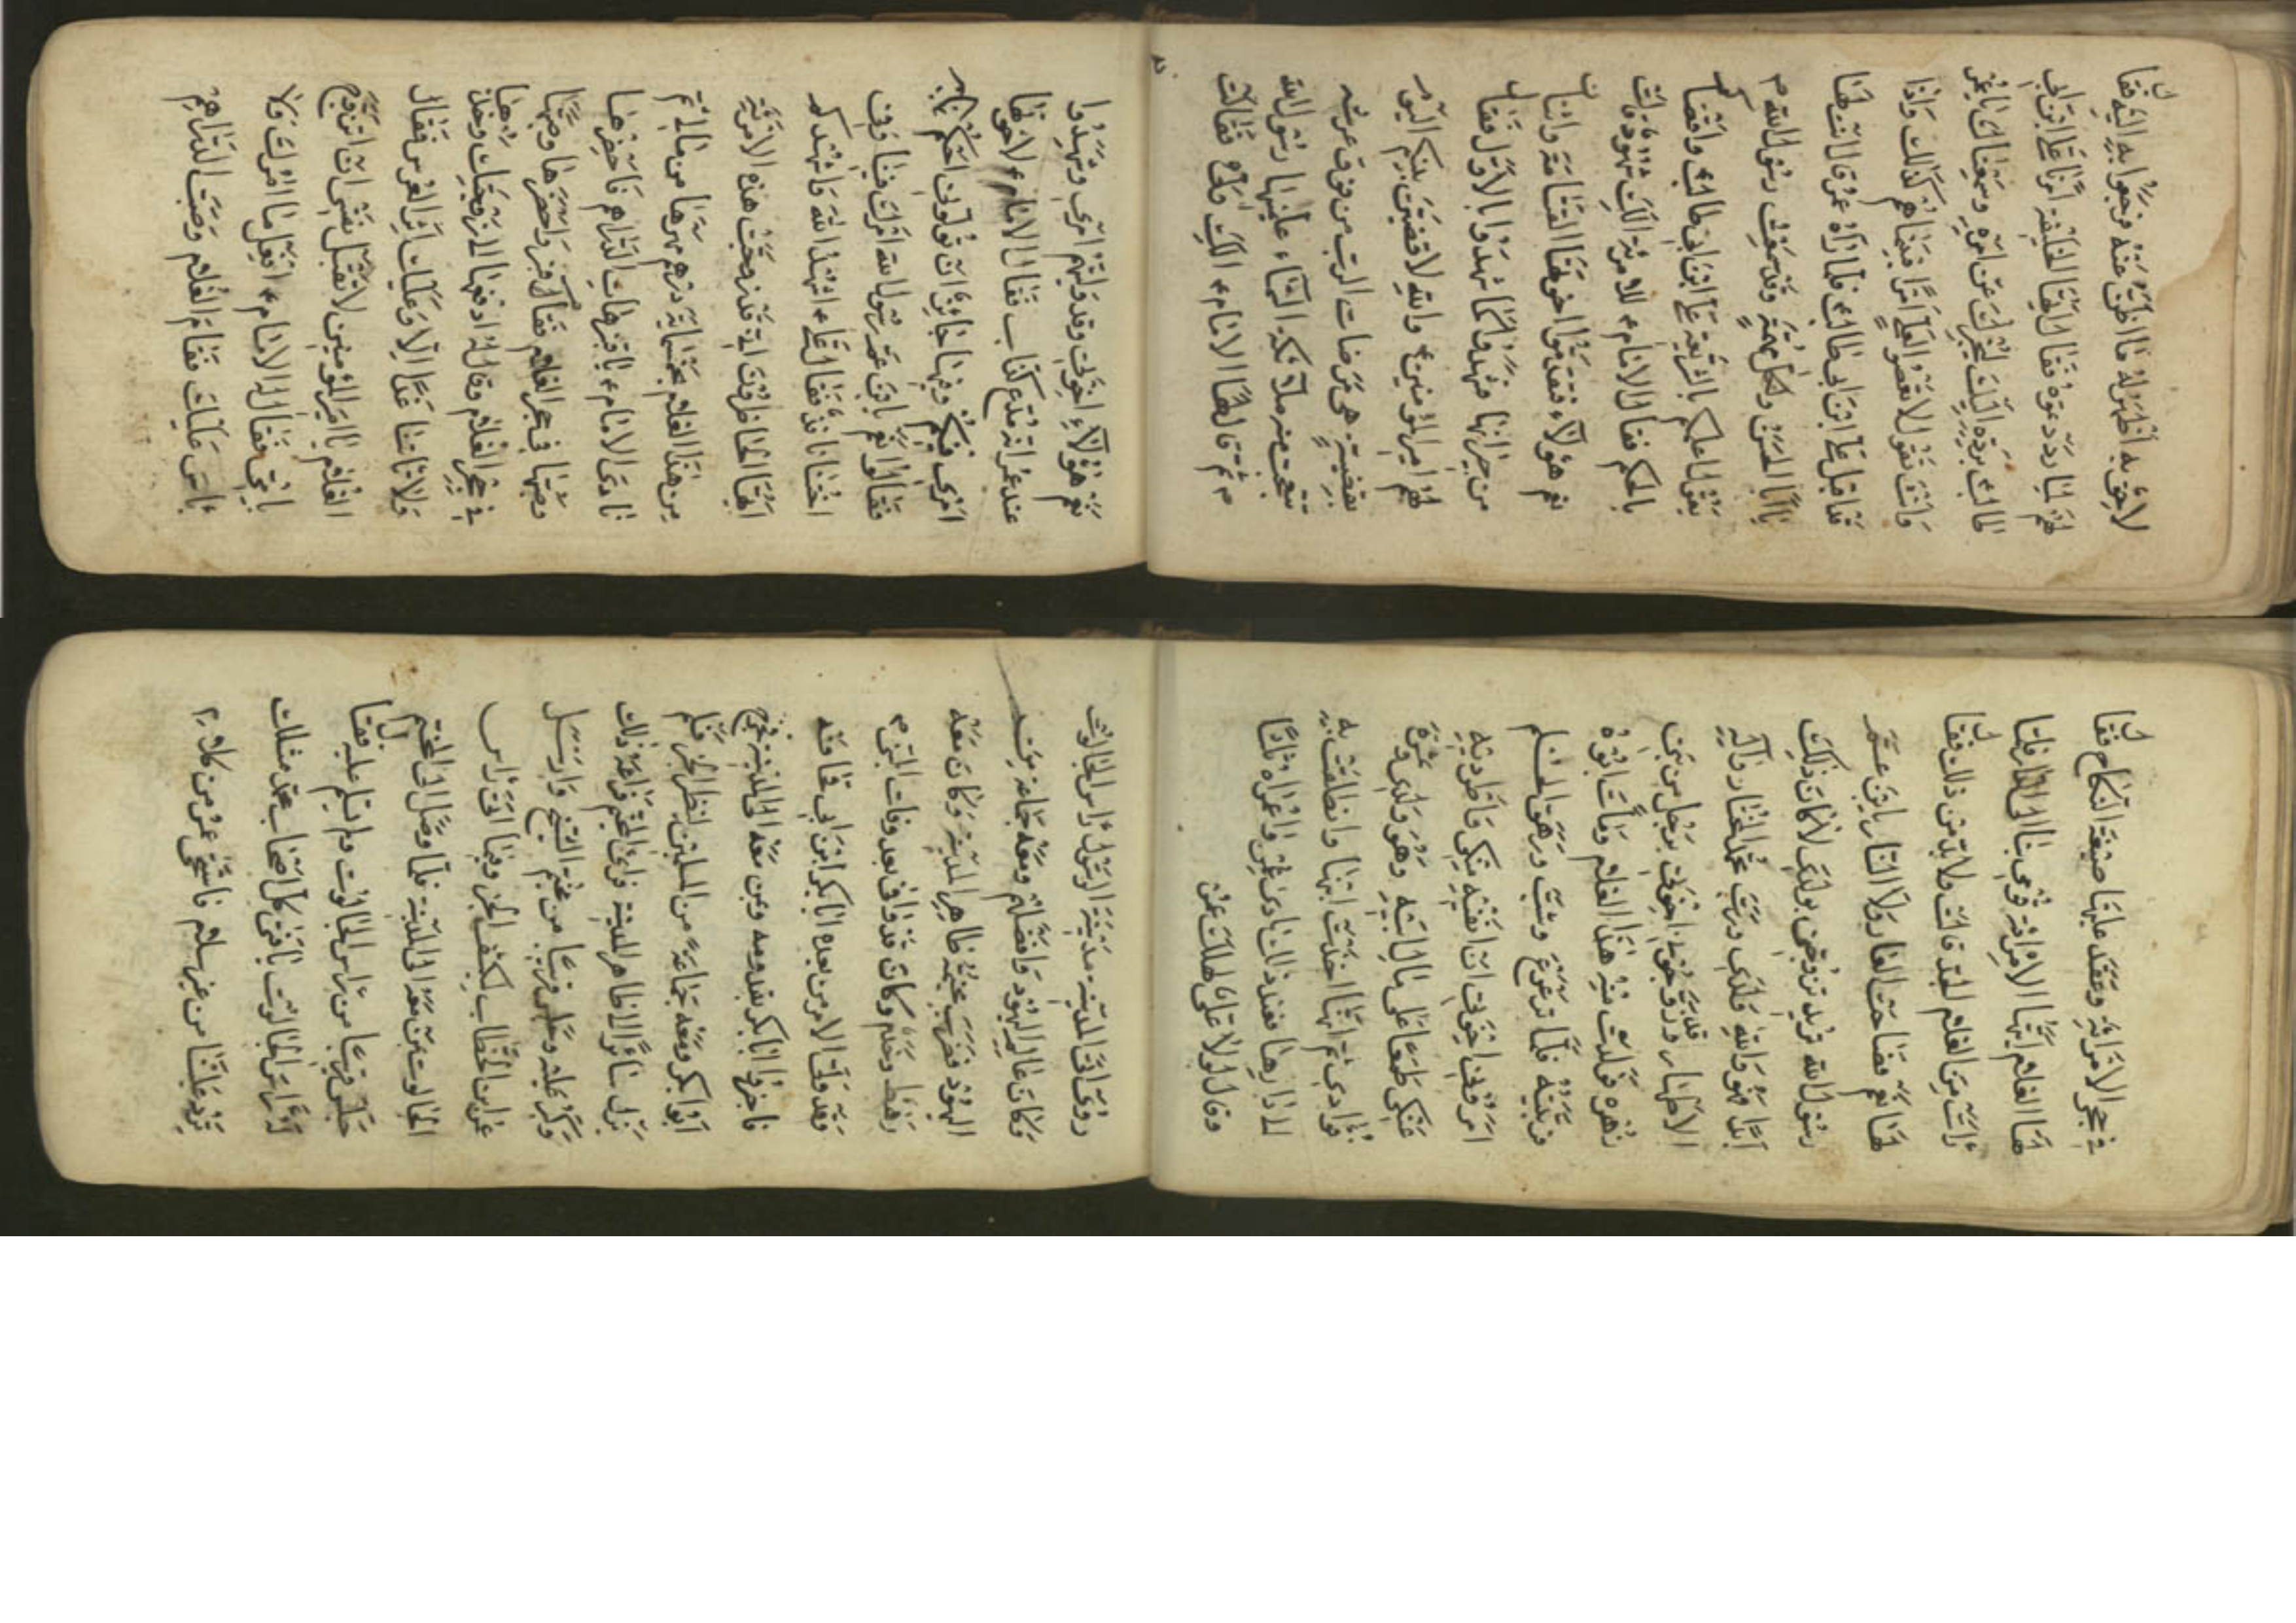 لاحق به اظهر له ما اظن عنه فرجعوا به اليه فقال
لهم لما رددتموه فقالوا ايها الخليفة امرنا علي ابن ابي
طالب برده اليك لنخبرك عن امره وسمعناك يا عمر
وانت تقول لا تعصوا لعلي امرا فبينما هم كذلك واذا
قد اقبل علي ابن ابي طالب فلما رآه عمر قال انت لهذا
يا ابا الحسن ولكل مهمة وقد سمعت رسول الله ص
يقول اعلمكم بالشريعة علي ابن ابي طالب واقضاكم
بالحكم فقال الامام ع للامرئة الك شهود قالت
نعم هؤلاء فتقدموا اخوتها القسامة
من جيرانها فشهدوا كما شهدوا بالاول فقال
لهم امير المؤمنين ع والله لاقضين بينكم اليوم
بقضية هي مرضات الرب من فوق عرشه
تتعجب منه ملائكة السماء علمنيها رسول الله
ص ثم قال لها الامام ع الك ولاة فقالت
نعم هؤلاء اخوتي وقد وليتهم امري وشهدوا
عند عمر انه مدع كذاب فقال الامام ع لاخوتها
امري فيكم وفيها جايز
فقالوا نعم يابن عم رسول الله امرك فينا وفي
اختنا نافذ فقال علي ع اشهد الله واشهدكم
ايها الحاضرون اني قد زوجت هذه الامرئة
من هذا الغلام بخمسماية درهم مهرها من مالي ثم
نادى الامام ع يا قنبر هات الدراهم فاحضرها
وصبها في حجر الغلام فقام قنبر واحضرها وصبها
في حجر الغلام وقال له ادفعها الى زوجتك وخذها
ولا تاتنا غدا الا وعليك اثر العرس فقال
الغلام يا امير المؤمنين لا تقبل نفسي ان اتزوج
بامي فقال له الامام ع افعل ما امرك ولا
باس عليك فقام الغلام وصب الدراهم
في حجر الامرئة وعقد عليها صيغة النكاح فقال
لها الغلام ايتها الامرئة قومي بنا الى الدار فلما
رات من الغلام الجد قالت ولا بد من ذلك فقال
لها نعم فصاحت العار ولا النار يابن عم
رسول الله تريد تزوجني بولدي لا كان ذلك
ابدا فهو والله ولدي ورب محمد المختار وآله
الاطهار قد زوجوني اخوتي برجل من بني
زهره فولدت منه هذا الغلام ومات ابوه
فربيته فلما ترعرع وشب ورهق الحلم
امروني اخوتي ان انفيه مني واطرديته
عني طمعا على مال ابيه وهو ولدي وثمرة
فؤادي ثم انها اخذت ابنها وانطلقت به
الى دارها فعند ذلك نادى عمر واعمراه ثلاثا
وقال لولا علي لهلك عمر
المدينة مدينة الرسول راس الجالوت
وكان عالم اليهود وافضلهم ومعه جماعة من
اليهود فضرب خيمة ظاهر المدينة وكان معه
رهط وخدم وكان قدوا في بعد وفات النبي ص
وقد ولى الامر من بعده ابا بكر ابن ابي قحافه
فاخبروا ابا بكر بقدومه ومن معه الى المدينة فخرج
ابو بكر ومعه جماعة من المسلمين لينظر الخبر فلم
يزل سائرا الى ظاهر المدينة فراى الخيم فراعه ذلك
وكبر عليه وجلس قريبا من خيم الشيخ وارسل
عمر ابن الخطاب ليكشف الخبر وقيل الى راس
الجالوت عن معه الى المدينة فلما وصل الى الخيم
جلس قريبا من راس الجالوت ولم يسلم عليه فقال
له راس الجالوت يا فتى كل اصحاب محمد مثلك
ترد علينا من غير سلام فاستحى عمر من كلامه